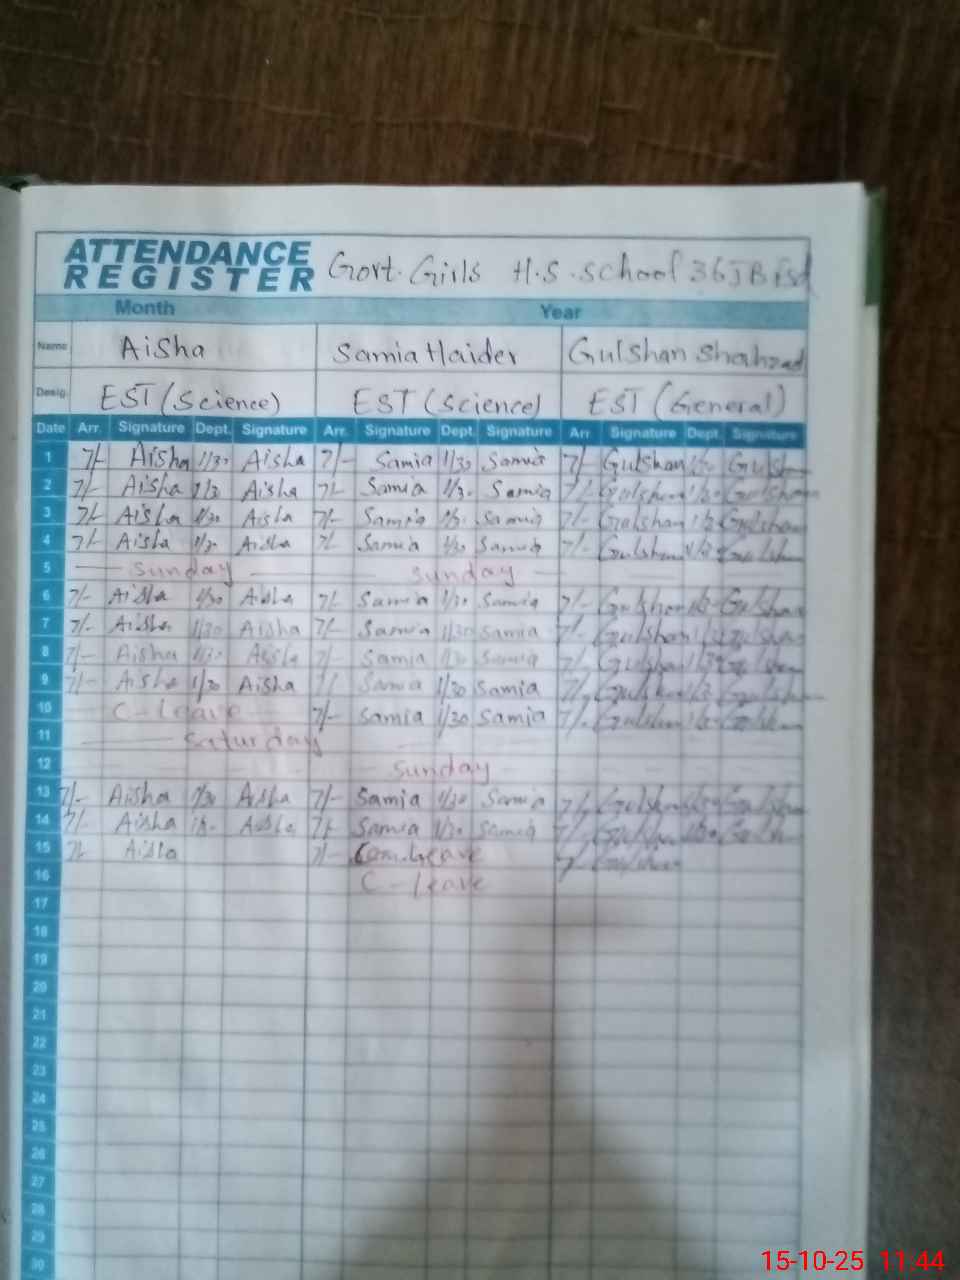 ATTENDANCE REGISTER Govt. Girls H.S. School 36JB Fsd
Month Year
Name Aisha Samia Haider Gulshan Shahzad
Desig. EST (Science) EST (Science) EST (General)
Date Arr. Signature Dept. Signature Arr. Signature Dept. Signature Arr Signature Dept. Signature
1 7/- Aisha 1/30 Aisha 7/- Samia 1/30 Samia 7/- Gulshan
2 7/- Aisha Aisha 7/- Samia Samia 7/- Gulshan Gulshan
3 7/- Aisha 1/30 Aisha 7/- Samia Samia 7/- Gulshan Gulshan
4 7/- Aisha Aisha 7/- Samia 1/30 Samia 7/- Gulshan
5 Sunday Sunday
6 7/- Aisha 1/30 Aisha 7/- Samia 1/30 Samia 7/- Gulshan Gulshan
7 7/- Aisha 1/30 Aisha 7/- Samia 1/30 Samia 7/- Gulshan
8 7/- Aisha Aisha 7/- Samia 1/30 Samia 7/- Gulshan
9 7/- Aisha 1/30 Aisha Samia 1/30 Samia 7/- Gulshan
10 C-leave 7/- Samia 1/30 Samia 7/- Gulshan
11 Saturday
12 Sunday
13 7/- Aisha 1/30 Aisha 7/- Samia 1/30 Samia 7/- Gulshan
14 7/- Aisha Aisha 7/- Samia 1/30 Samia 7/-
15 7/- Aisha 7/- Com.Leave 7/-
16 C-leave
17
18
19
20
21
22
23
24
25
26
27
28
29
30
15-10-25 11:44